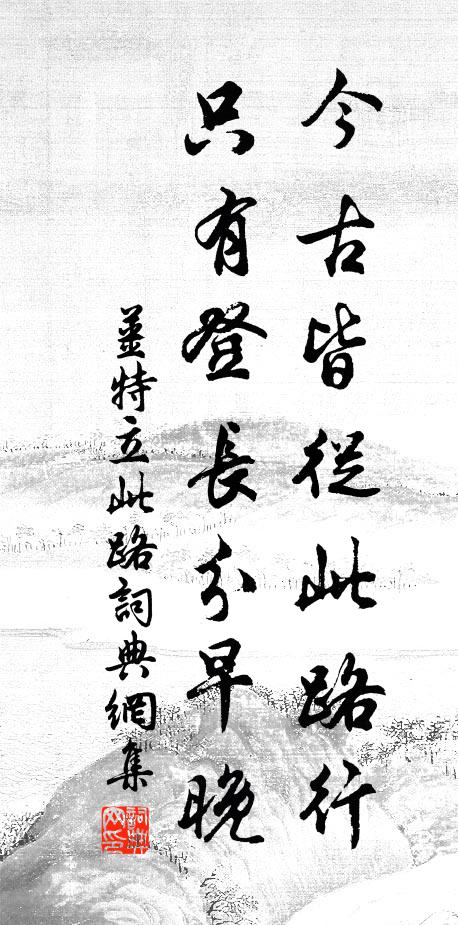 今古皆從此路行
只有登長分早晚
姜特立此路詞典網集